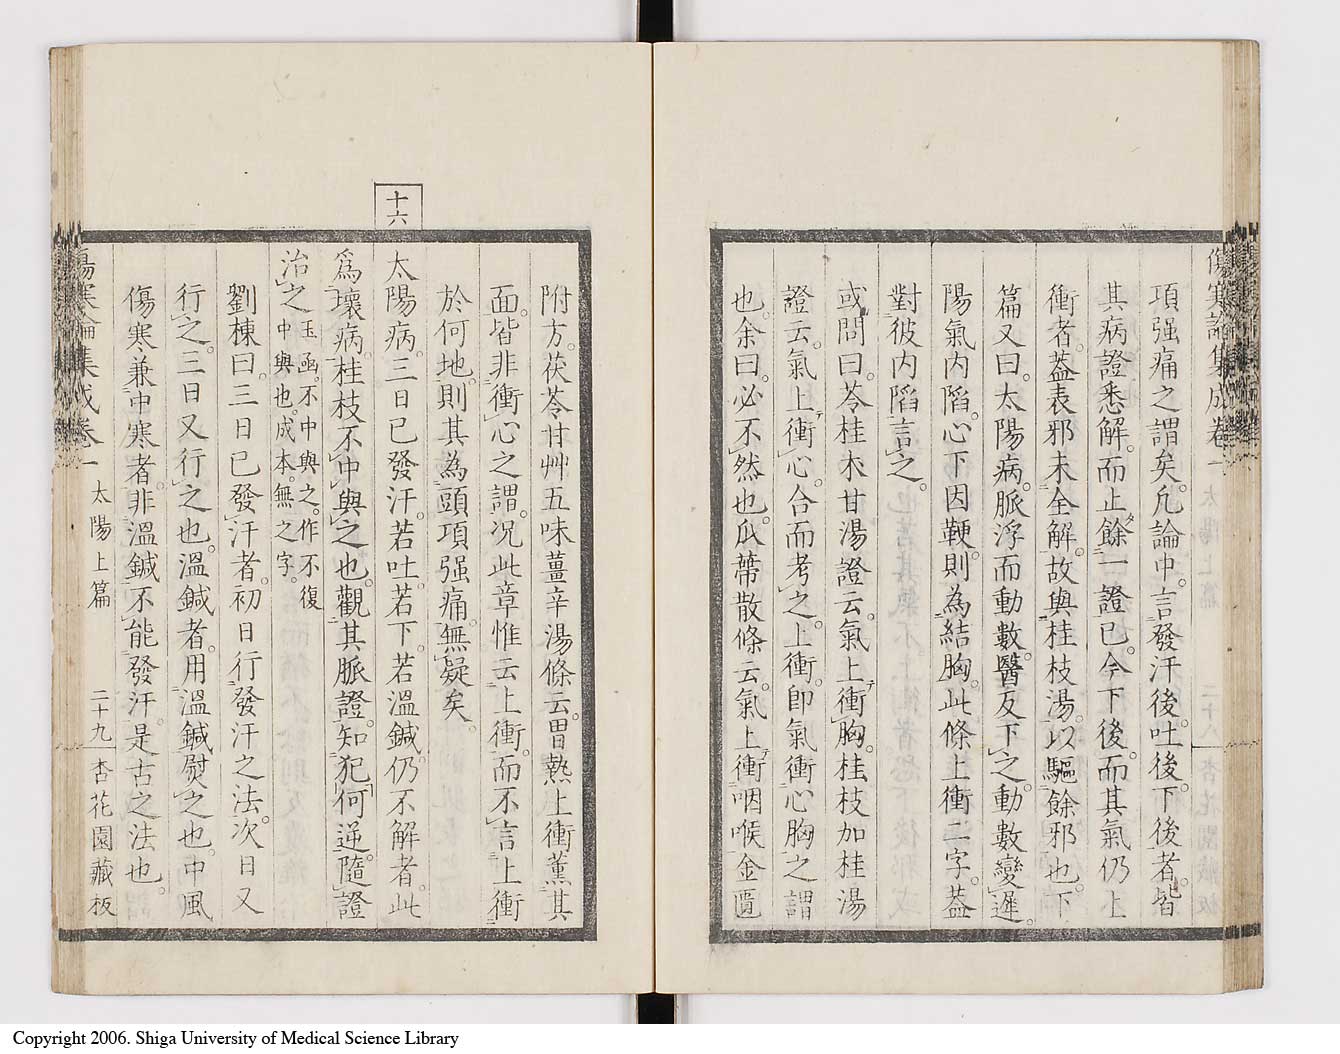 傷寒論集成卷一
項强痛之謂矣。凡論中。言發汗後。吐後。下後者。皆
其病證悉解。而止餘一證已。今下後。而其氣仍上
衝者。葢表邪未全解。故與桂枝湯。以驅餘邪也。下
篇又曰。太陽病。脈浮而動數。醫反下之。動數變遲。
陽氣内陷。心下因鞕。則為結胸。此條上衝二字。葢
對彼内陷言之。
或問曰。苓桂朮甘湯證云。氣上衝胸。桂枝加桂湯
證云。氣上衝心。合而考之。上衝。卽氣衝心胸之謂
也。余曰。必不然也。瓜蔕散條云。氣上衝咽喉。金匱
附方。茯苓甘艸五味薑辛湯條云。胃熱上衝薰其
面。皆非衝心之謂。况此章惟云上衝。而不言上衝
於何地。則其為頭項强痛。無疑矣。
十六
太陽病。三日已發汗。若吐。若下。若溫鍼。仍不解者。此
爲壞病。桂枝不中與之也。觀其脈證。知犯何逆。隨證
治之 玉函。不中與之。作不復
中與也。成本。無之字。
劉棟曰。三日已發汗者。初日行發汗之法。次日又
行之。三日又行之也。溫鍼者。用溫鍼熨之也。中風
傷寒兼中寒者。非溫鍼不能發汗。是古之法也。
傷寒論集成卷一 太陽上篇 二十九 杏花園藏板
Copyright 2006. Shiga University of Medical Science Library